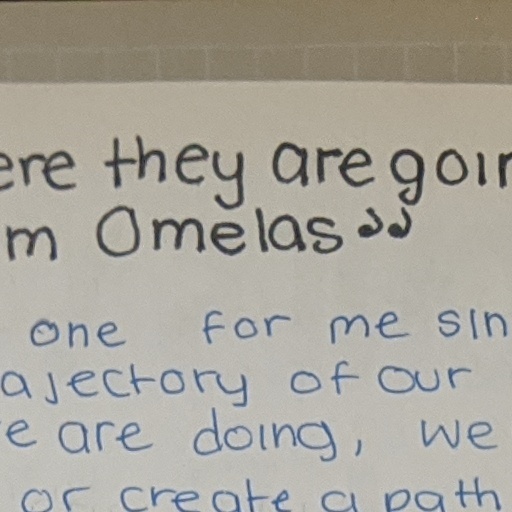 ere they are goin
m Omelas”
one for me sin
ajectory of our
e are doing, we
or create a path